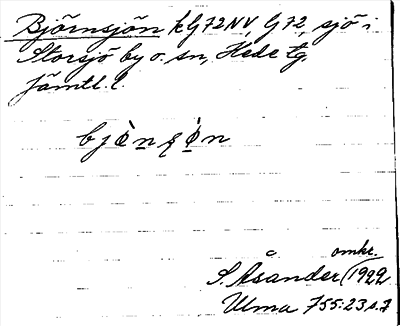 Björnsjön kG72NV, G72, sjö i
Storsjö by o. sn, Hede tg
Jämtl. l.
bjö̀nʂö̀n
omkr.
S. Åsander (1922
Ulma 755:23 s.7